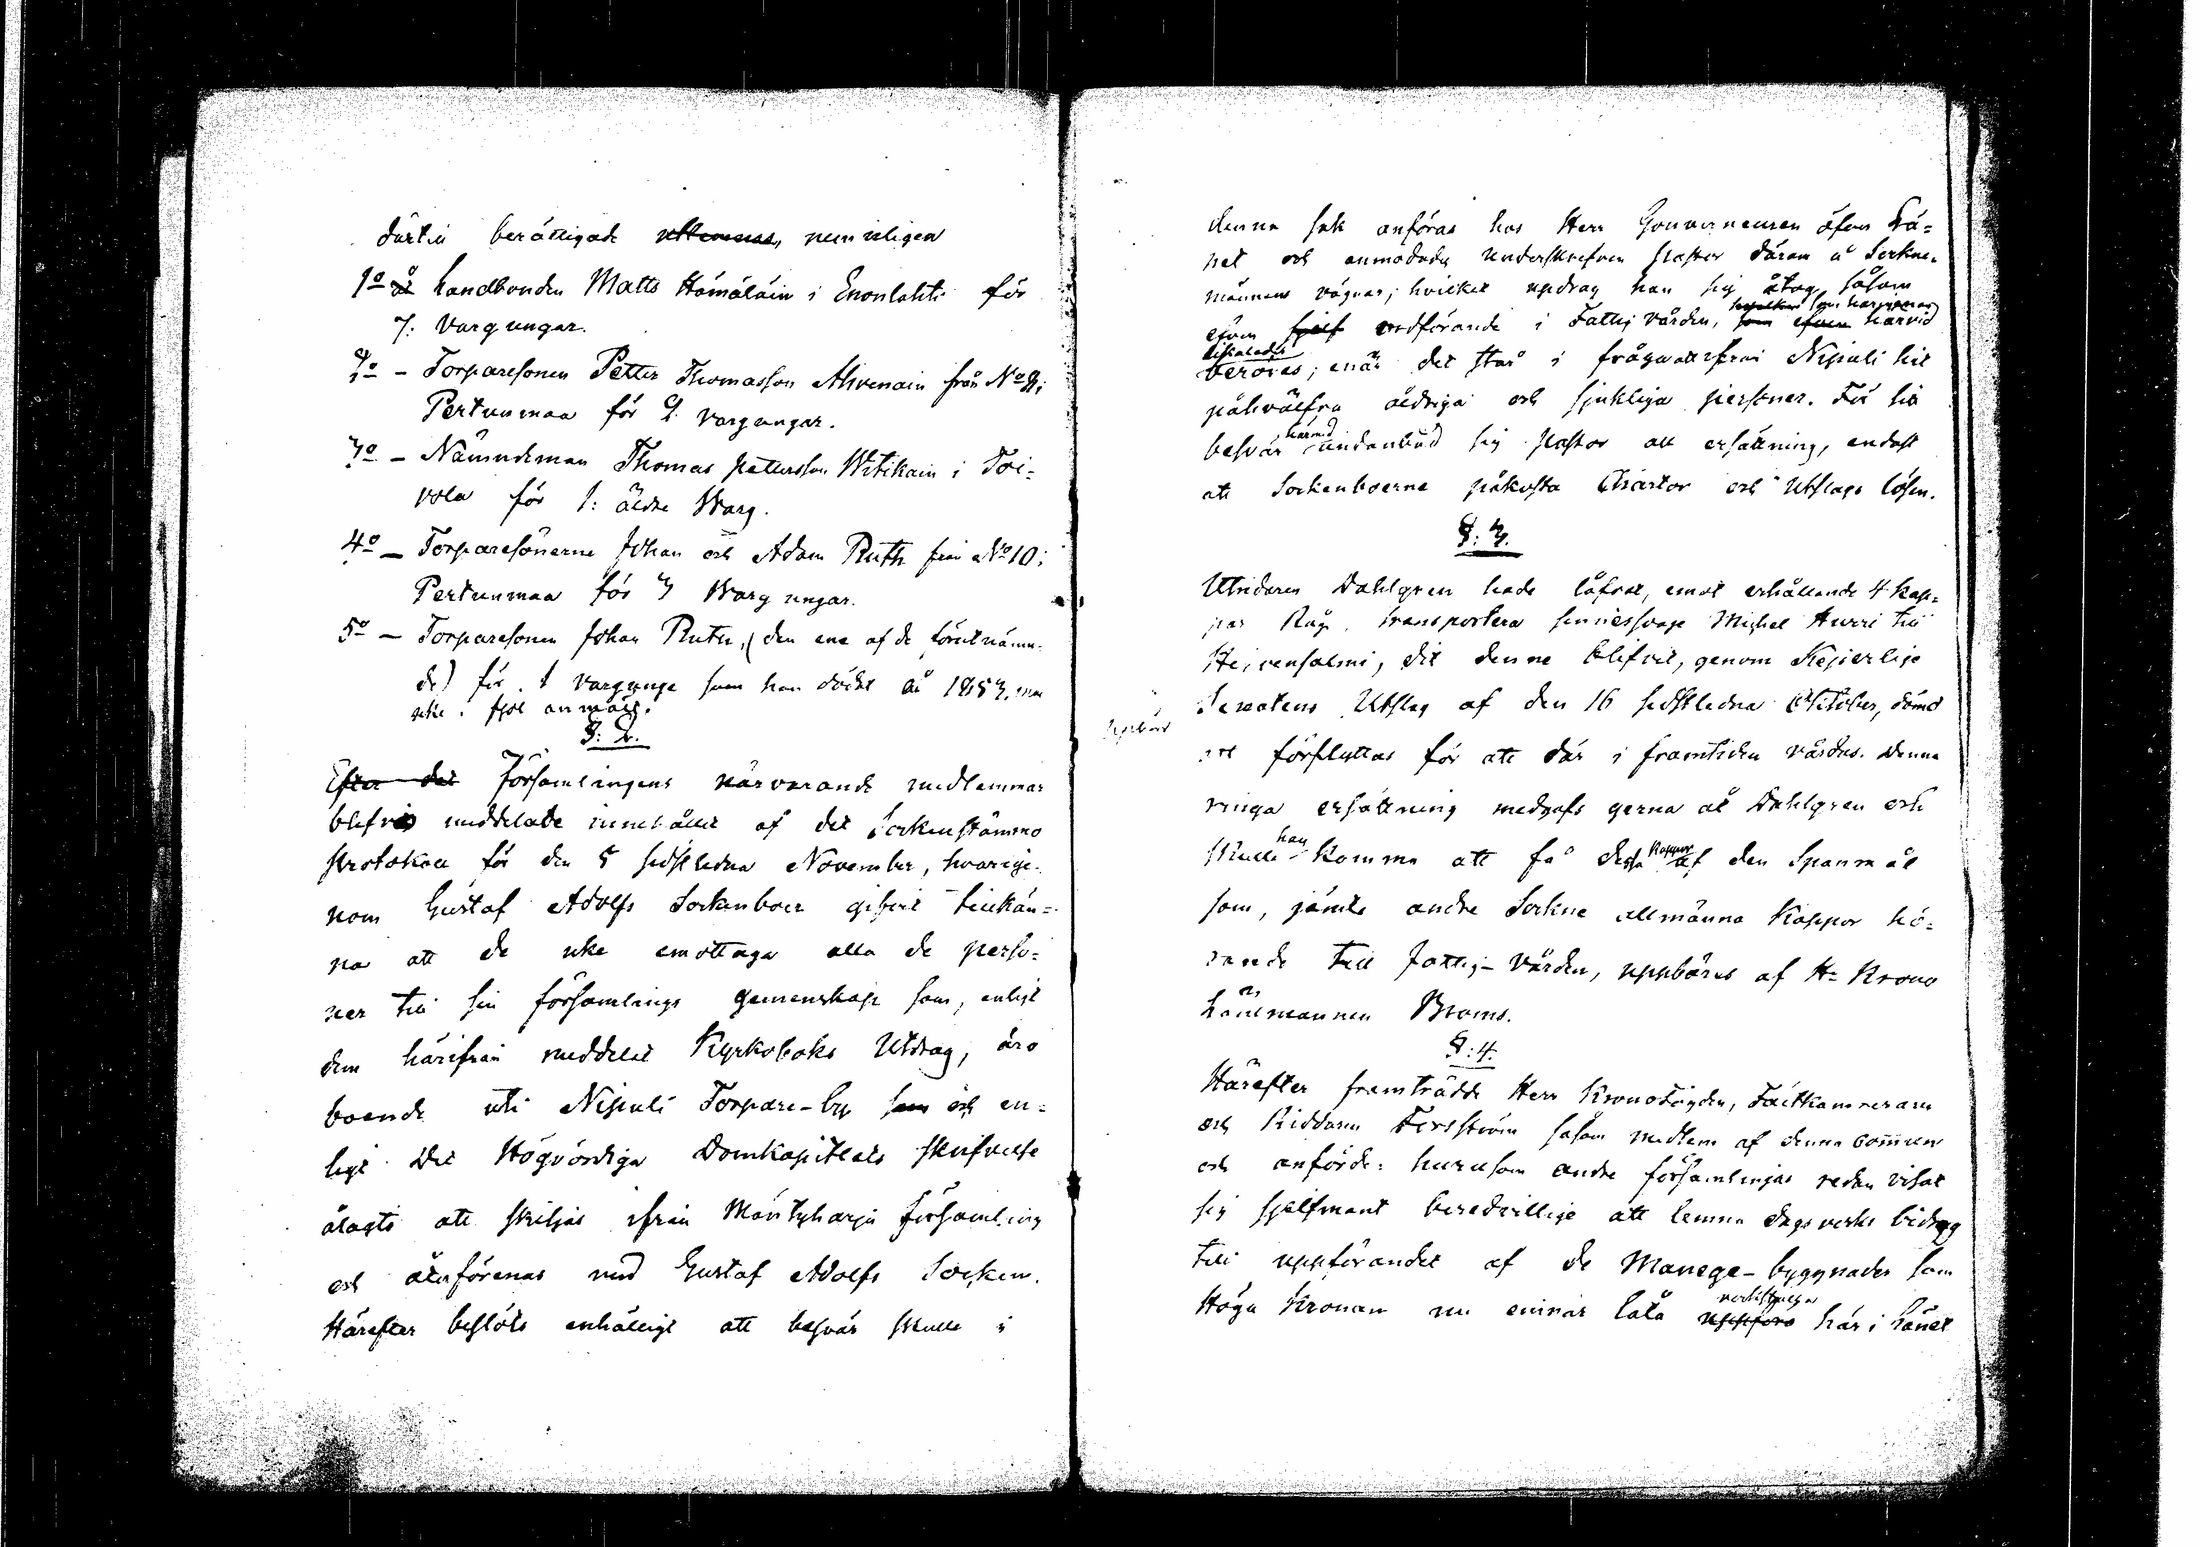 därtill berättigade uttemnas, nemnligen
1o å Landbonden Matts Hämäläin i Enonlahti för
7. Vargungar.
2o - Torparesonen Petter Thomasson Ahvenain från No 8;
Pertunmaa för 9. vargungar.
3o - Nämndeman Thomas Pettersson Witikain i Toi=
vola för 1: äldre Warg.
4o - Torparesönerne Johan och Adam Ruth från No 10;
Pertunmaa för 3 Warg ungar.
5o - Torparesonen Johan Ruth, (den ena af de förutnämn-
de) för 1 vargunge som han dödat år 1853, men
icke i fjol anmält.
§: 2.
Efter det Församlingens närvarande medlemmar
blifvit meddelade innehållet af det Sockenstämmo
Protokoll för den 5 sidstledna November, hvarige-
nom Gustaf Adolfs Sockenboer gifvit tillkän=
na att de icke emottaga alla de perso=
ner till sin församlings gemenskap som, enligt
dem härifrån meddelat Kyrkoboks Utdrag, äro
boende uti Nipuli Torpare-by som och en=
ligt Det Högvördiga Domkapitlets skrifvelse
ålagts att skiljas ifrån Mäntyharju församling
och återförenas med Gustaf Adolfs Socken.
Härefter beslöts enhälligt att besvär skulle i
denna sak anföras hos Herr Gouverneuren öfver Lä=
net och anmodades underskrefven Pastor därom å Sockne-
männens vägnar; hvilket updrag han sig åtog, såsom
hvilken som härigenom
även sjelf ordförande i Fattigvården, som efven härvid
beröres; enär det står i frågavarefrån Nipuli hit
påhvälfva åldriga och sjukliga personer. För sitt
härmed
besvär undanbad sig Pastor all ersättning, endast
att Sockenboerne påkosta Chartor och Utslags lösen.
§: 3.
Utridaren Dahlgren hade låfvat, emot erhållande 4 Kap=
par Råg, transportera sinnessvage Michel Hurri till
Heivensalmi, dit denne blifvit, genom Kejserlige
Senatens Utslag af den 16 sidstledna Oktober, dömd
att förflyttas för att där i framtiden vårdas. Denna
ringa ersättning medgafs gerna åt Dahlgren och
han
Kappar
skulle komma att få dessa af den Spanmål
som, jämte andre Sockne allmänna Kappor hö=
rande till Fattig-Vården, uppbäres af Hr Krono
Länsmannen Broms.
§: 4.
Härefter framträdde Herr Kronofogden, Fältkamreraren
och Riddaren Forsström såsom medlem af denna commun
och anförde: hurusom andre församlingar redan visat
sig sjelfmant beredvillige att lemna dagsverks bidrag
till uppförandet af de Manege-byggnader som
verkställa
Höga Kronan nu ämnar låta uppföra här i Länet